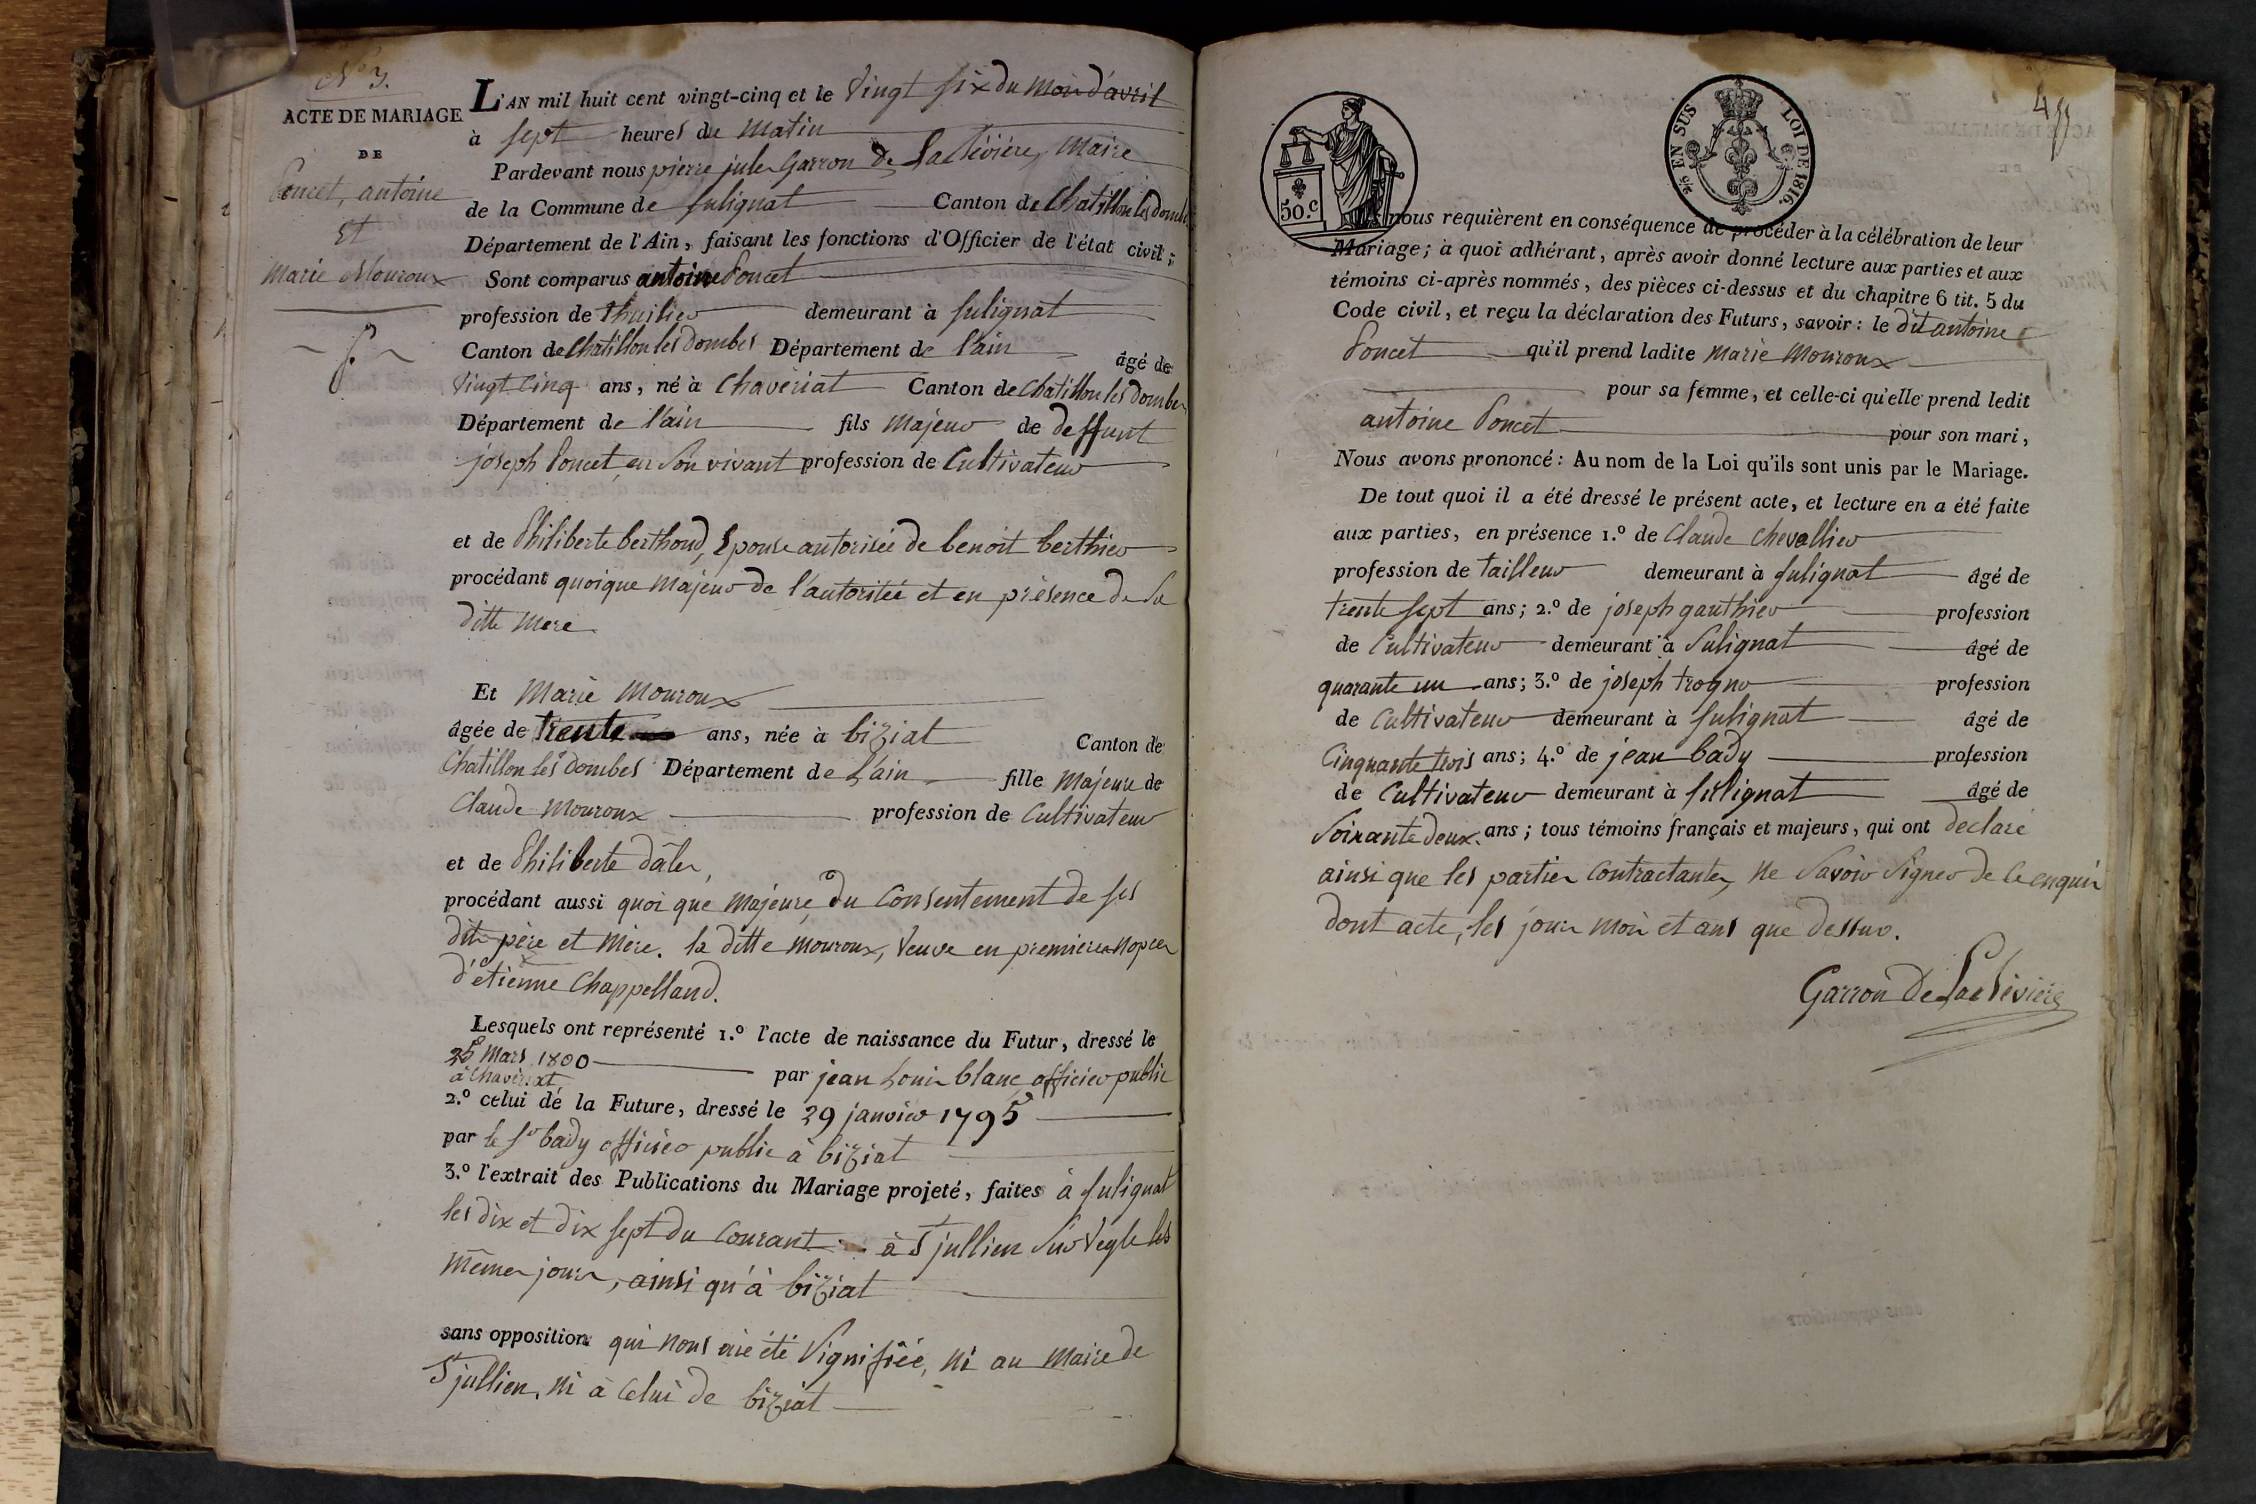 N° 3.
ACTE DE MARIAGE
DE
Poncet, antoine
Et
Marie Mouroux
L'AN mil huit cent vingt-cinq et le Vingt six du mois d'avril
à sept heures du matin
Pardevant nous pierre jules Garron de Lachévière, Maire
de la Commune de Sulignat Canton de Chatillon les dombes
Département de l'Ain, faisant les fonctions d'Officier de l'état civil ;
Sont comparus antoine Poncet
profession de thuilier demeurant à Sulignat
Canton de Chatillon les dombes Département de l'ain âgé de
Vingt Cinq ans, né à Chavèriat Canton de Chatillon les dombes
Département de l'ain fils majeur de deffunt
joseph Poncet, en Son vivant profession de Cultivateur
et de Philiberte berthoud, Epouse autorisée de benoit berthier
procédant quoique majeur de l'autoritée et en présence de Sa
ditte mere
Et Marie Mouroux
âgée de trente ans, née à biziat Canton de
Chatillon les dombes Département de L'ain fille Majeure de
Claude Mouroux profession de Cultivateur
et de Philiberte
procédant aussi quoi que majeure, du Consentement de ses
dits père et mère. la ditte mouroux, Veuve en premieres nopces
d'étienne Chappelland.
Lesquels ont représenté 1.° l'acte de naissance du Futur, dressé le
Mars 1800
à Chavèriat par jean Louis blanc officier public
2.° celui de la Future, dressé le 29 janvier 1795
par le Sr bady officier public à biziat
3.° l'extrait des Publications du Mariage projeté, faites à Sulignat
les dix et dix sept du Courant à St jullien Sur Veyle les
mêmes jours, ainsi qu'à biziat
sans opposition qui nous aie été Signifiée, ni au Maire de
St jullien, ni à Celui de biziat
45
50.c
2/5 EN SUS
LOI DE 1816.
Ils nous requièrent en conséquence de procéder à la célébration de leur
Mariage ; à quoi adhérant, après avoir donné lecture aux parties et aux
témoins ci-après nommés, des pièces ci-dessus et du chapitre 6 tit. 5 du
Code civil, et reçu la déclaration des Futurs, savoir : le dit antoine
Poncet qu'il prend ladite Marie Mouroux
pour sa femme, et celle-ci qu'elle prend ledit
antoine Poncet pour son mari,
Nous avons prononcé : Au nom de la Loi qu'ils sont unis par le Mariage.
De tout quoi il a été dressé le présent acte, et lecture en a été faite
aux parties, en présence 1.° de Claude Chevallier
profession de tailleur demeurant à Sulignat âgé de
trente sept ans ; 2.° de joseph gauthier profession
de Cultivateur demeurant à Sulignat âgé de
quarante un ans ; 3.° de joseph trogno profession
de Cultivateur demeurant à Sulignat âgé de
Cinquante trois ans ; 4.° de jean bady profession
de Cultivateur demeurant à Sulignat âgé de
Soixante deux ans ; tous témoins français et majeurs, qui ont declaré
ainsi que les parties Contractantes, ne Savoir Signer de ce enquis
dont acte, les jours mois et ans que dessus.
Garron De Lachévière